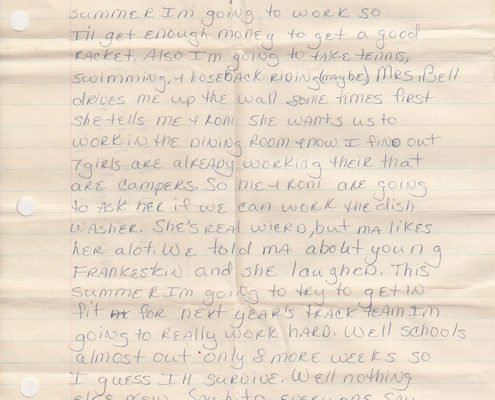 summer Im going to work so
I'll get enough money to get a good
racket. Also I'm going to take tennis,
swimming, + hoseback riding (maybe) Mrs. Bell
drives me up the wall some times first
she tells me + Roni she wants us to
work in the dining room + now I find out
7 girls are already working their that
are campers. So me + Roni are going
to ask her if we can work the dish
washer. She's real wierd, but ma likes
her alot. We told ma about young
Frankestein and she laughed. This
summer Im going to try to get in
fit for next year's track team Im
going to really work hard. Well schools
almost out only 8 more weeks so
I guess I'll survive. Well nothing
else new. Say hi to everyone